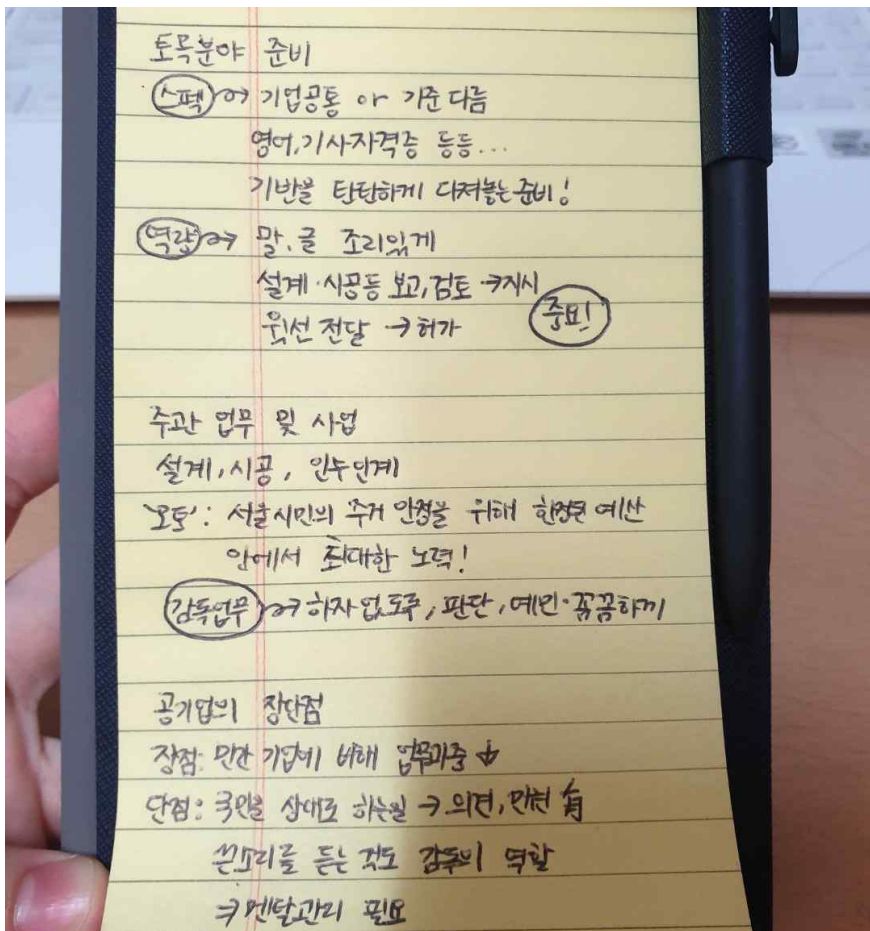 토목분야 준비
스펙 → 기업공통 or 기준 다름
영어, 기사자격증 등등...
기반을 탄탄하게 다져놓는 준비!
역량 → 말, 글 조리있게
설계·시공등 보고, 검토 → 지시
윗선 전달 → 허가 중요!
주관 업무 및 사업
설계, 시공, 인수인계
'모토': 서울시민의 주거 안정을 위해 한정된 예산
안에서 최대한 노력!
감독업무 → 하자 없도록, 판단, 예민·꼼꼼하게
공기업의 장단점
장점: 민간 기업에 비해 업무과중 ↓
단점: 국민을 상대로 하는일 → 의견, 민원 有
쓴소리를 듣는 것도 감독의 역할
→ 멘탈관리 필요